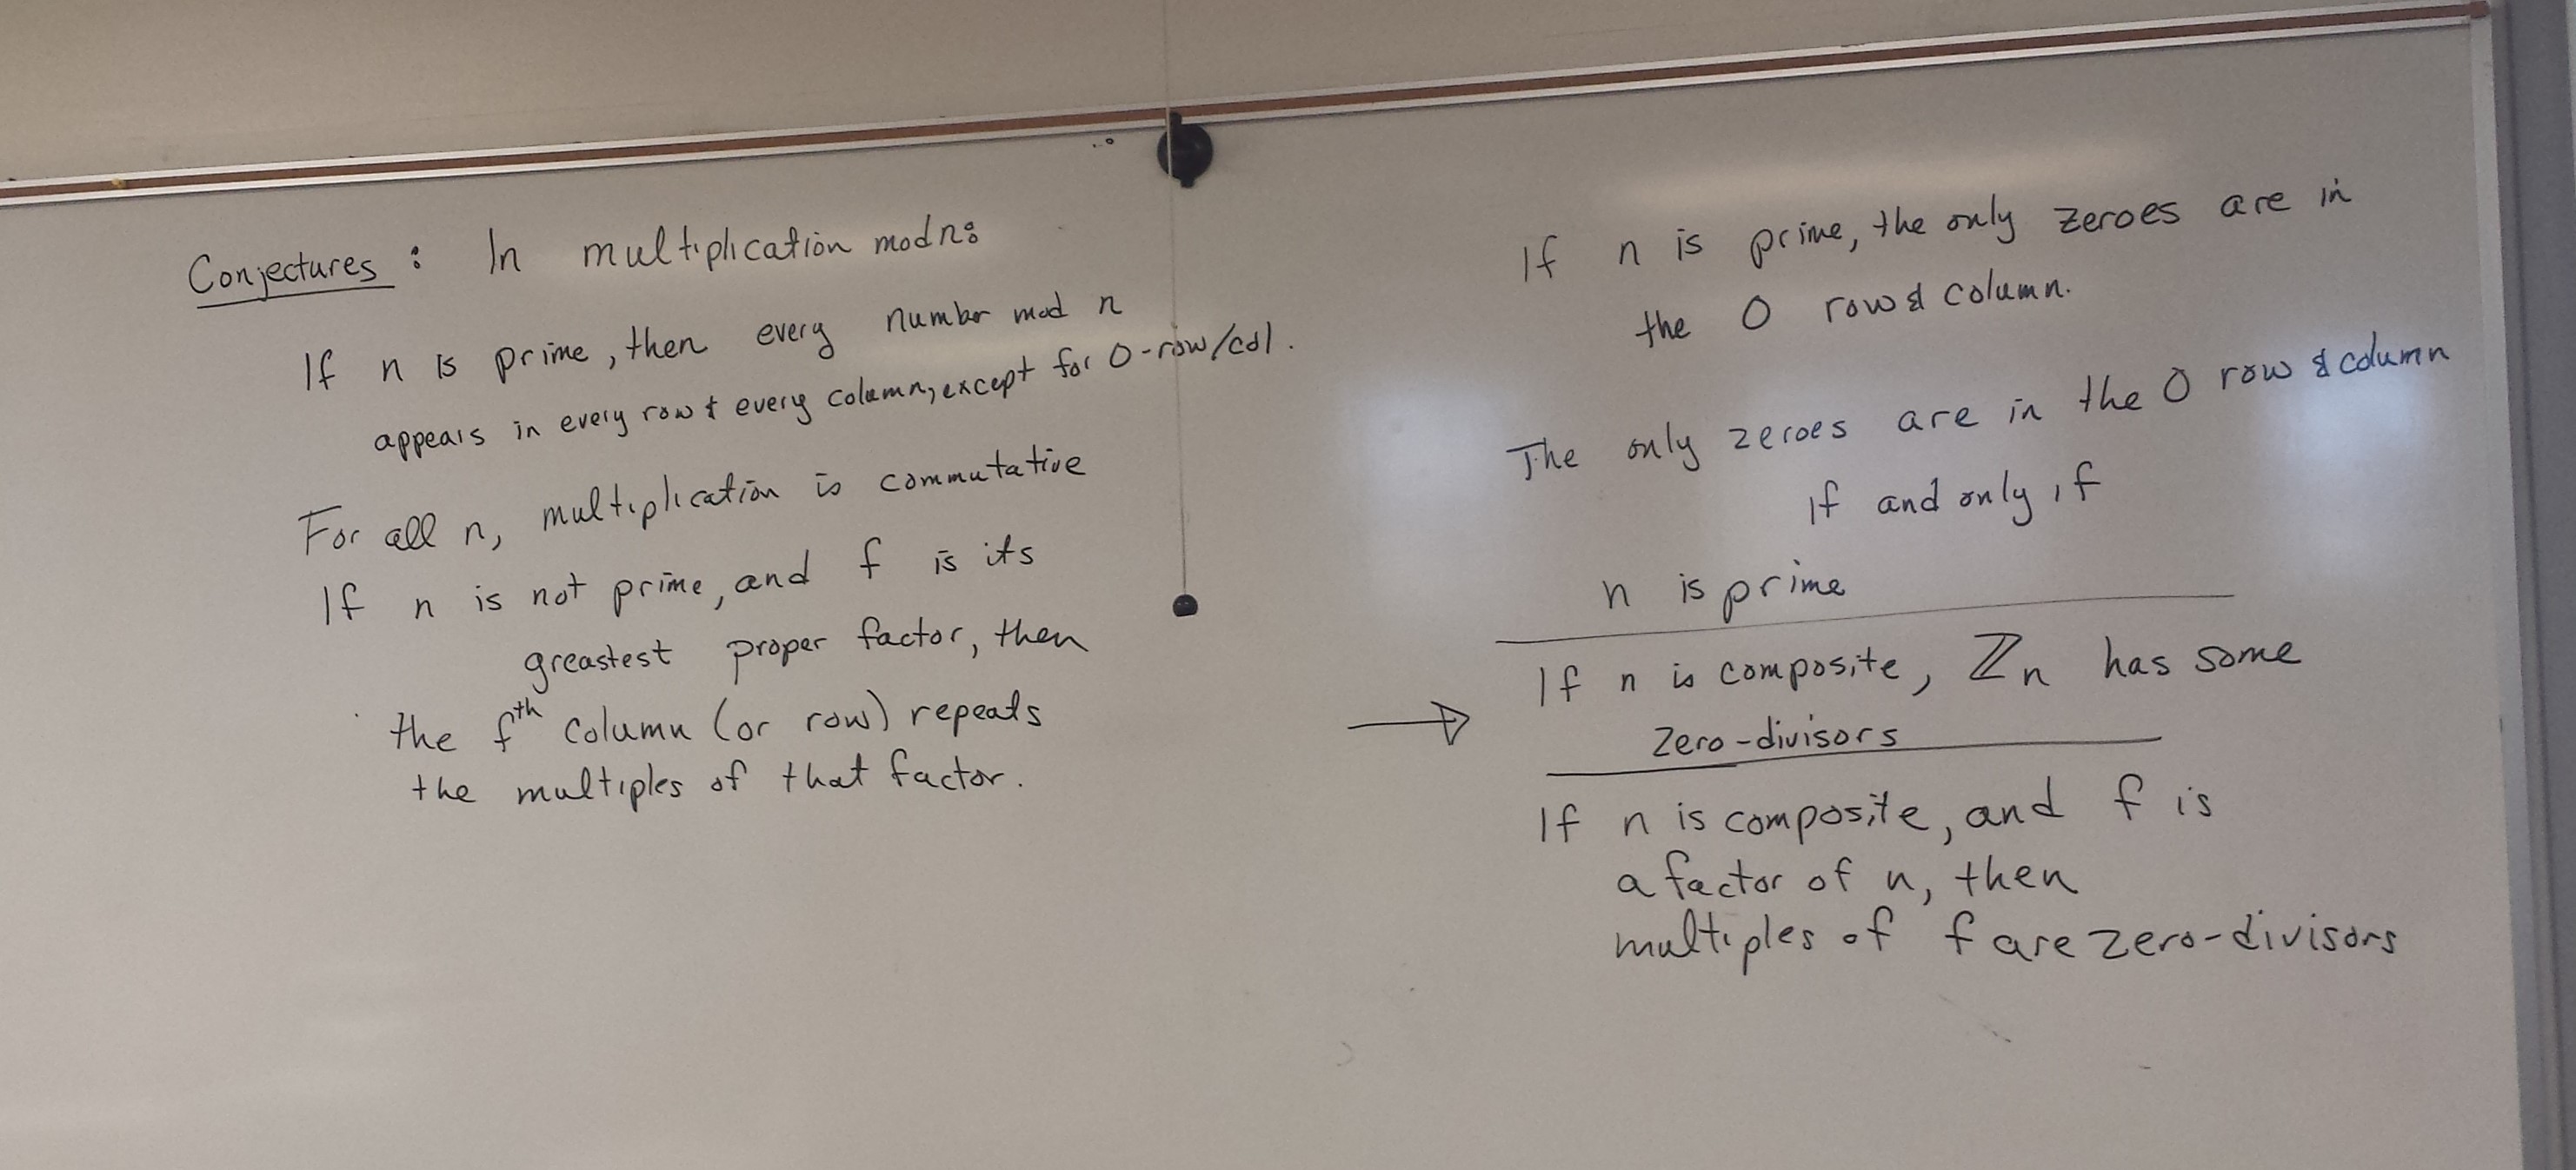 Conjectures: In multiplication mod n:
If n is prime, then every number mod n
appears in every row & every column, except for 0-row/col.
For all n, multiplication is commutative
If n is not prime, and f is its
greastest proper factor, then
the fth column (or row) repeats
the multiples of that factor.
If n is prime, the only zeroes are in
the 0 row & column.
The only zeroes are in the 0 row & column
if and only if
n is prime
If n is composite, ℤn has some
→ zero-divisors
If n is composite, and f is
a factor of n, then
multiples of f are zero-divisors